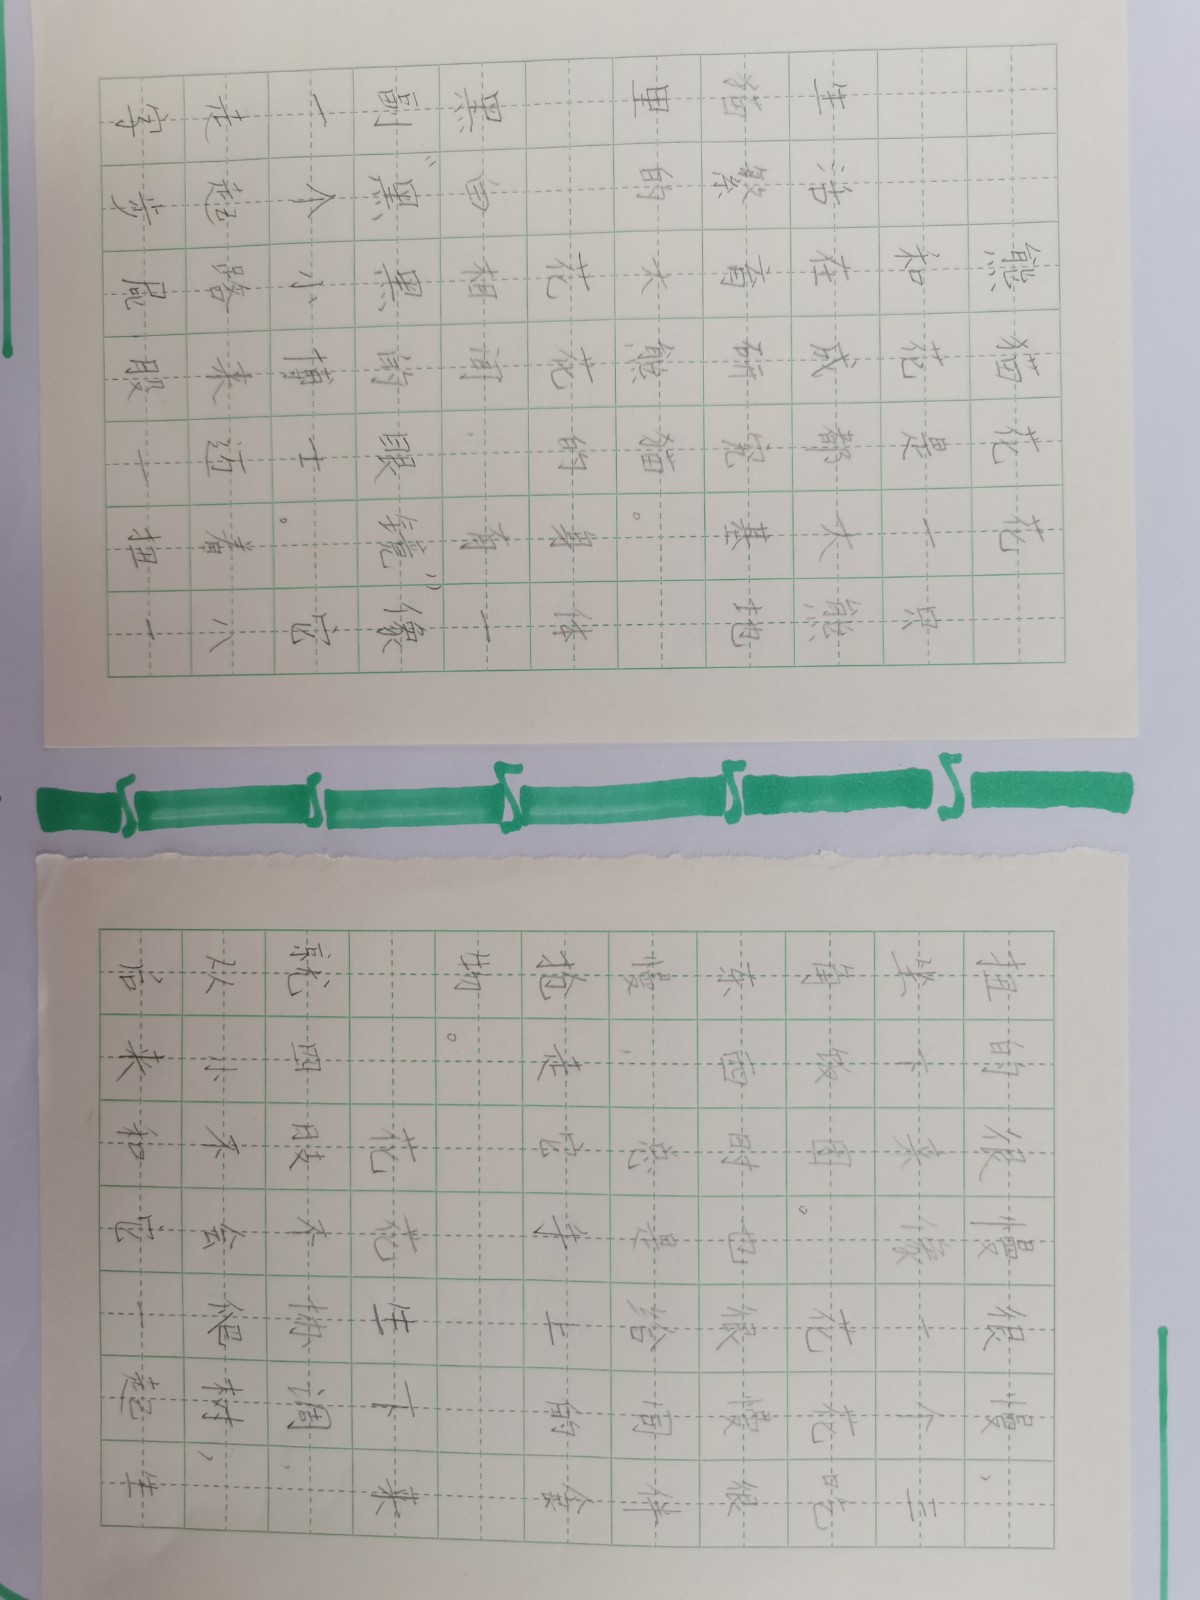 熊猫花花
和花是一只
生活在成都大熊
猫繁育研究基地
里的大熊猫。
花花的身体
黑白相间,有一
副“黑黑的眼镜”像
一个小博士。它
走起路来迈着八
字步屁股一扭一
扭的很慢很慢,
坐下来像一个三
角饭团。花花吃
东西时也很慢很
慢,总是给同伴
抢走它手上的食
物。
花花生下来
就四肢不协调,
从小不会爬树,
后来和它一起生